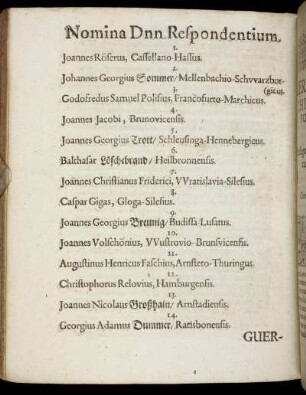 Nomina Dnn. Respondentium.
1.
Joannes Röserus, Cassellano-Hassus.
2.
Johannes Georgius Sommer/ Mellenbachio-Schvvarzbur-
(gicus.
3.
Godofredus Samuel Polisius, Francofurto-Marchicus.
4.
Joannes Jacobi, Brunovicensis.
5.
Joannes Georgius Trott/ Schleusinga-Hennebergicus.
6.
Balthasar Löschebrand/ Heilbronnensis.
7.
Joannes Christianus Friderici, VVratislavia-Silesius.
8.
Caspar Gigas, Gloga-Silesius.
9.
Joannes Georgius Breunig/ Budissâ-Lusatus.
10.
Joannes Volschönius, VVustrovio-Brunsvicensis.
11.
Augustinus Henricus Faschius, Arnsteto-Thuringus.
12.
Christophorus Relovius, Hamburgensis.
13.
Joannes Nicolaus Großhain/ Arnstadiensis.
14.
Georgius Adamus Dummer/ Ratisbonensis.
GUER-